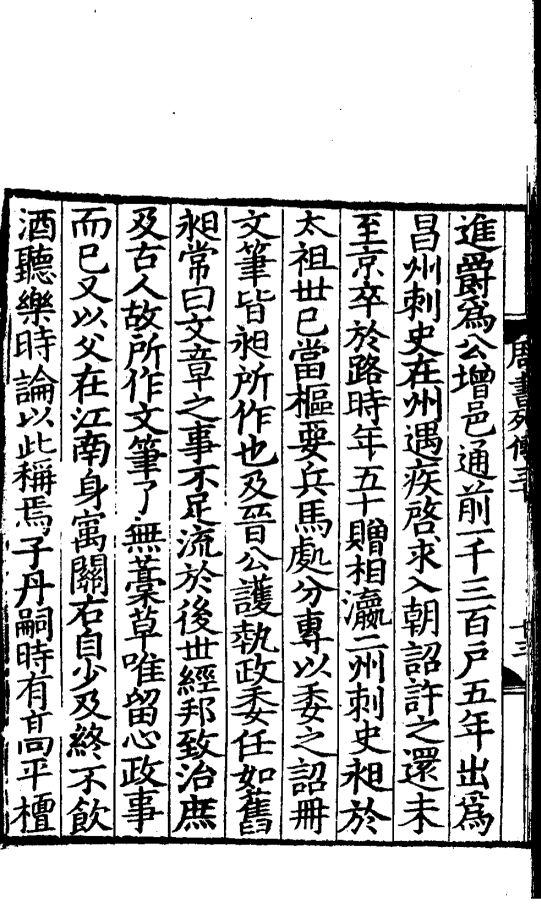 周書列傳三十
十三
進爵爲公增邑通前一千三百戶五年出爲
昌州刺史在州遇疾啓求入朝詔許之還未
至京卒於路時年五十贈相瀛二州刺史昶於
太祖世已當樞要兵馬處分專以委之詔冊
文筆皆昶所作也及晉公護執政委任如舊
昶常曰文章之事不足流於後世經邦致治庶
及古人故所作文筆了無藁草唯留心政事
而已又以父在江南身寓關右自少及終不飲
酒聽樂時論以此稱焉子丹嗣時有高平檀